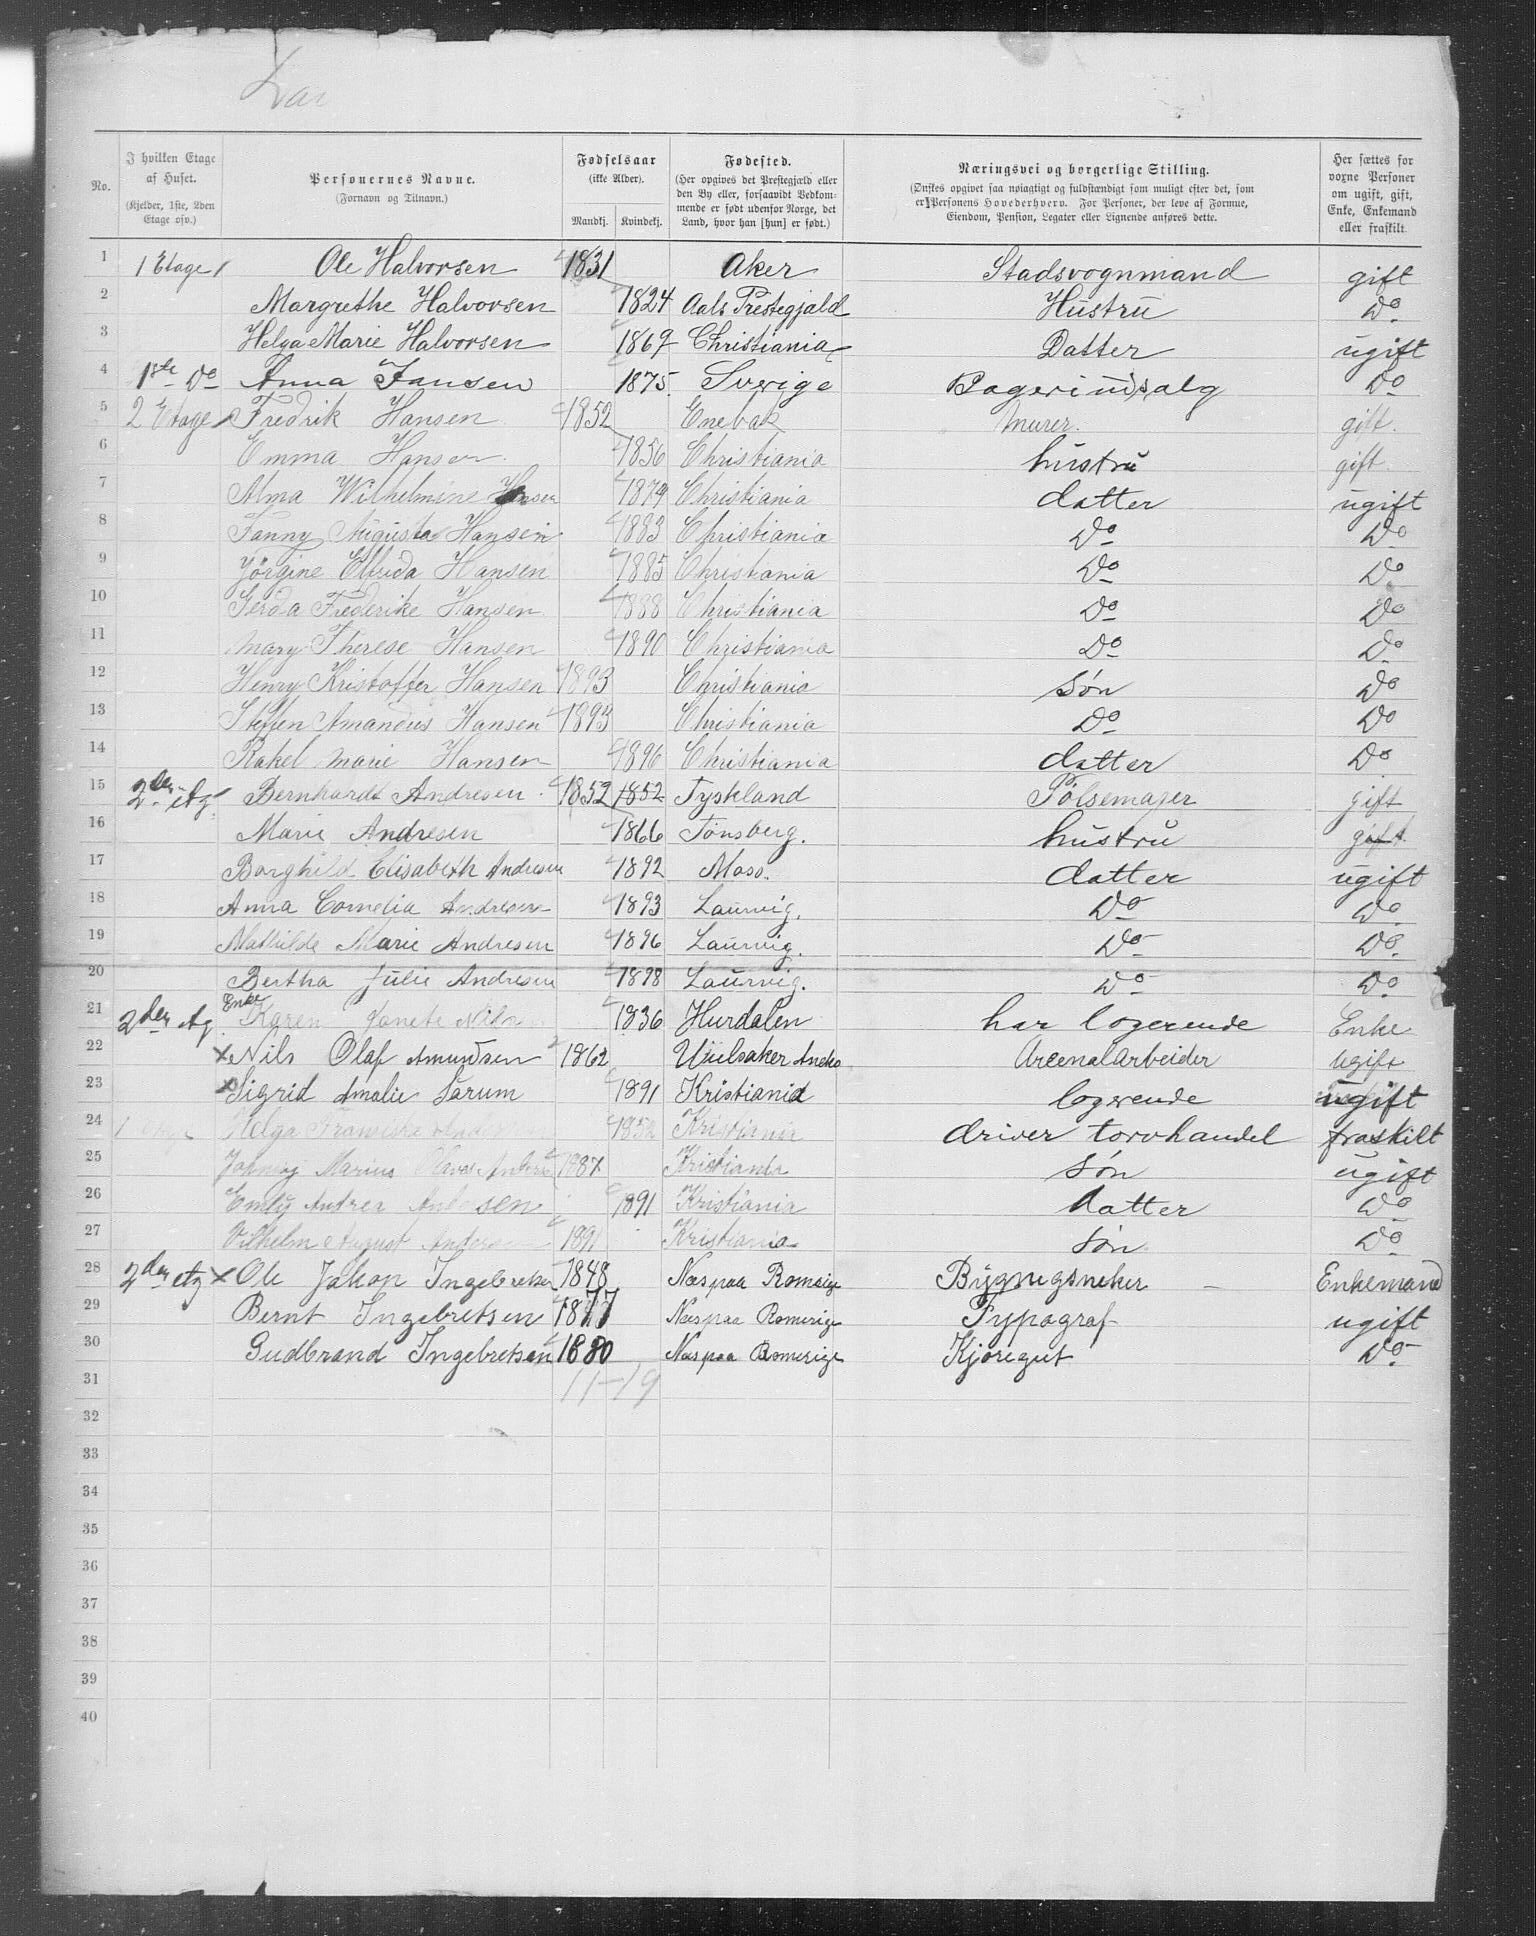 No.
I hvilken Etage af Huset. (Kjelder, 1ste, 2den Etage osv.)
Personernes Navne. (Fornavn og Tilnavn.)
Fødselsaar (ikke Alder). Mandkj. Kvindekj.
Fødested. (Her opgives det Prestegjæld eller den By eller, forsaavidt Vedkommende er født udenfor Norge, det Land, hvor han [hun] er født.)
Næringsvei og borgerlige Stilling. (Ønskes opgivet saa nøiagtigt og fuldstændigt som muligt efter det, som er Personens Hovederhverv. For Personer, der leve af Formue, Eiendom, Pension, Legater eller Lignende anføres dette.
Her sættes for voxne Personer om ugift, gift, Enke, Enkemand eller fraskilt.
1 1 Etage Ole Halvorsen 1831 Aker Stadsvognmand gift
2 Margrethe Halvorsen 1824 Aals Prestegjæld Hustru Do
3 Helga Marie Halvorsen 1867 Christiania Datter ugift
4 1ste Do Anna Jansen 1875 Sverige Do
5 2 Etage Fredrik Hansen 1852 Enebak Murer. gift.
6 Emma Hansen 1856 Christiania hustru gift.
7 Alma Wilhelmine Hansen 1879 Christiania datter ugift
8 Fanny Augusta Hansen 1883 Christiania Do Do
9 Jörgine Elfrida Hansen 1885 Christiania Do Do
10 Gerda Frederike Hansen 1888 Christiania Do Do
11 Mary Therese Hansen 1890 Christiania Do Do
12 Henry Kristoffer Hansen 1893 Christiania Søn Do
13 Steffen Amandus Hansen 1893 Christiania Do Do
14 Rakel Marie Hansen 1896 Christiania datter Do
15 2den Etg. Bernhardt Andresen 1852 1852 Tyskland Pølsemager gift
16 Marie Andresen 1866 Tønsberg. hustru gift.
17 Borghild Elisabeth Andresen 1892 Moss. datter ugift
18 Anna Cornelia Andresen 1893 Laurvig. Do Do
19 Mathilde Marie Andresen 1896 Laurvig. Do Do
20 Bertha Julie Andresen 1898 Laurvig. Do Do
21 2den Etg Enke Karen 1836 Hurdalen har logerende Enke
22 Nils Olaf Amundsen 1862 Arcenalarbeider ugift
23 Sigrid Amalie Sørum 1891 Kristiania logerende ugift
24 Helga Kristiania driver torvhandel fraskilt
25 Marius 1887 Kristiania Søn ugift
26 Emly Andrea Andersen 1891 Kristiania datter Do
27 Vilhelm August Andersen 1891 Kristiania Søn Do
28 2den etg Ole Jakop Ingebretsen 1848 Næs paa Romerige Enkemand
29 Bernt Ingebretsen 1877 Næs paa Romerige Typograf ugift
30 Gudbrand Ingebretsen 1880 Næs paa Romerige Kjøregut Do
31 11-19
32
33
34
35
36
37
38
39
40